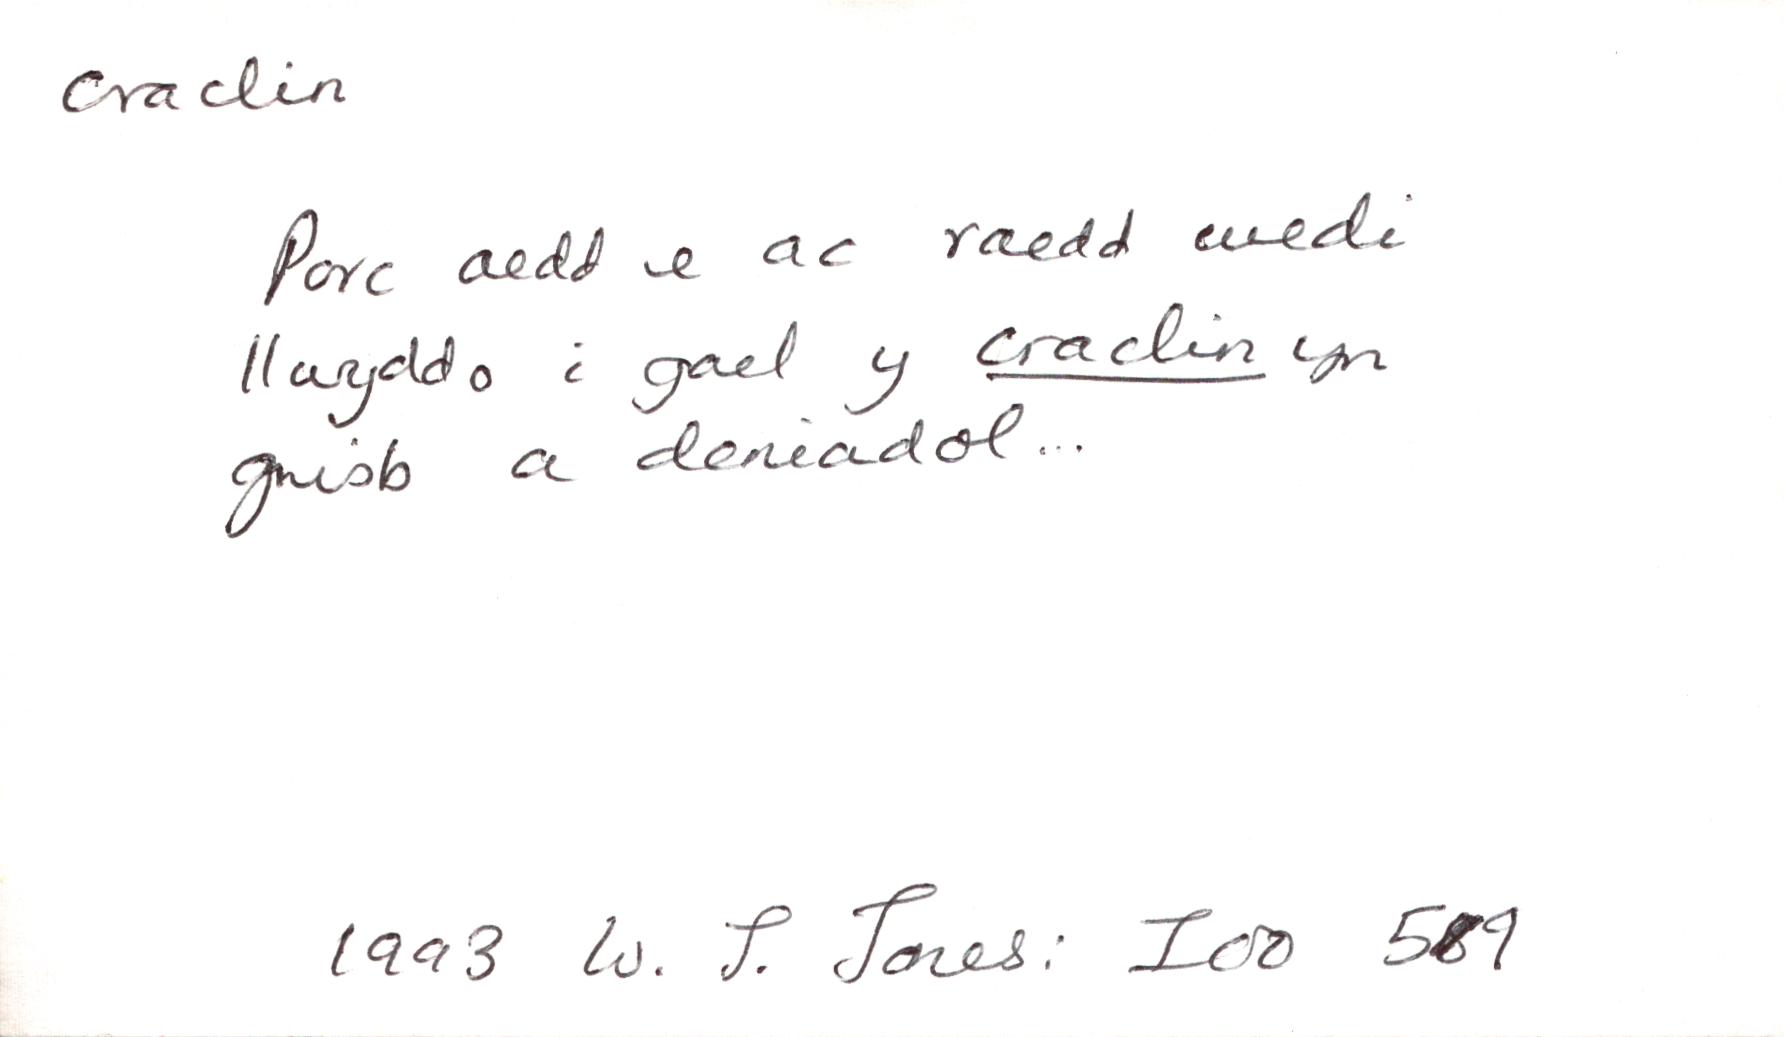 craclin
Porc aedd e ac raedd wedi
llwyddo i gael y craclin yn
grisb a deniadol...
1993 W. J. Jones: Ioo 589